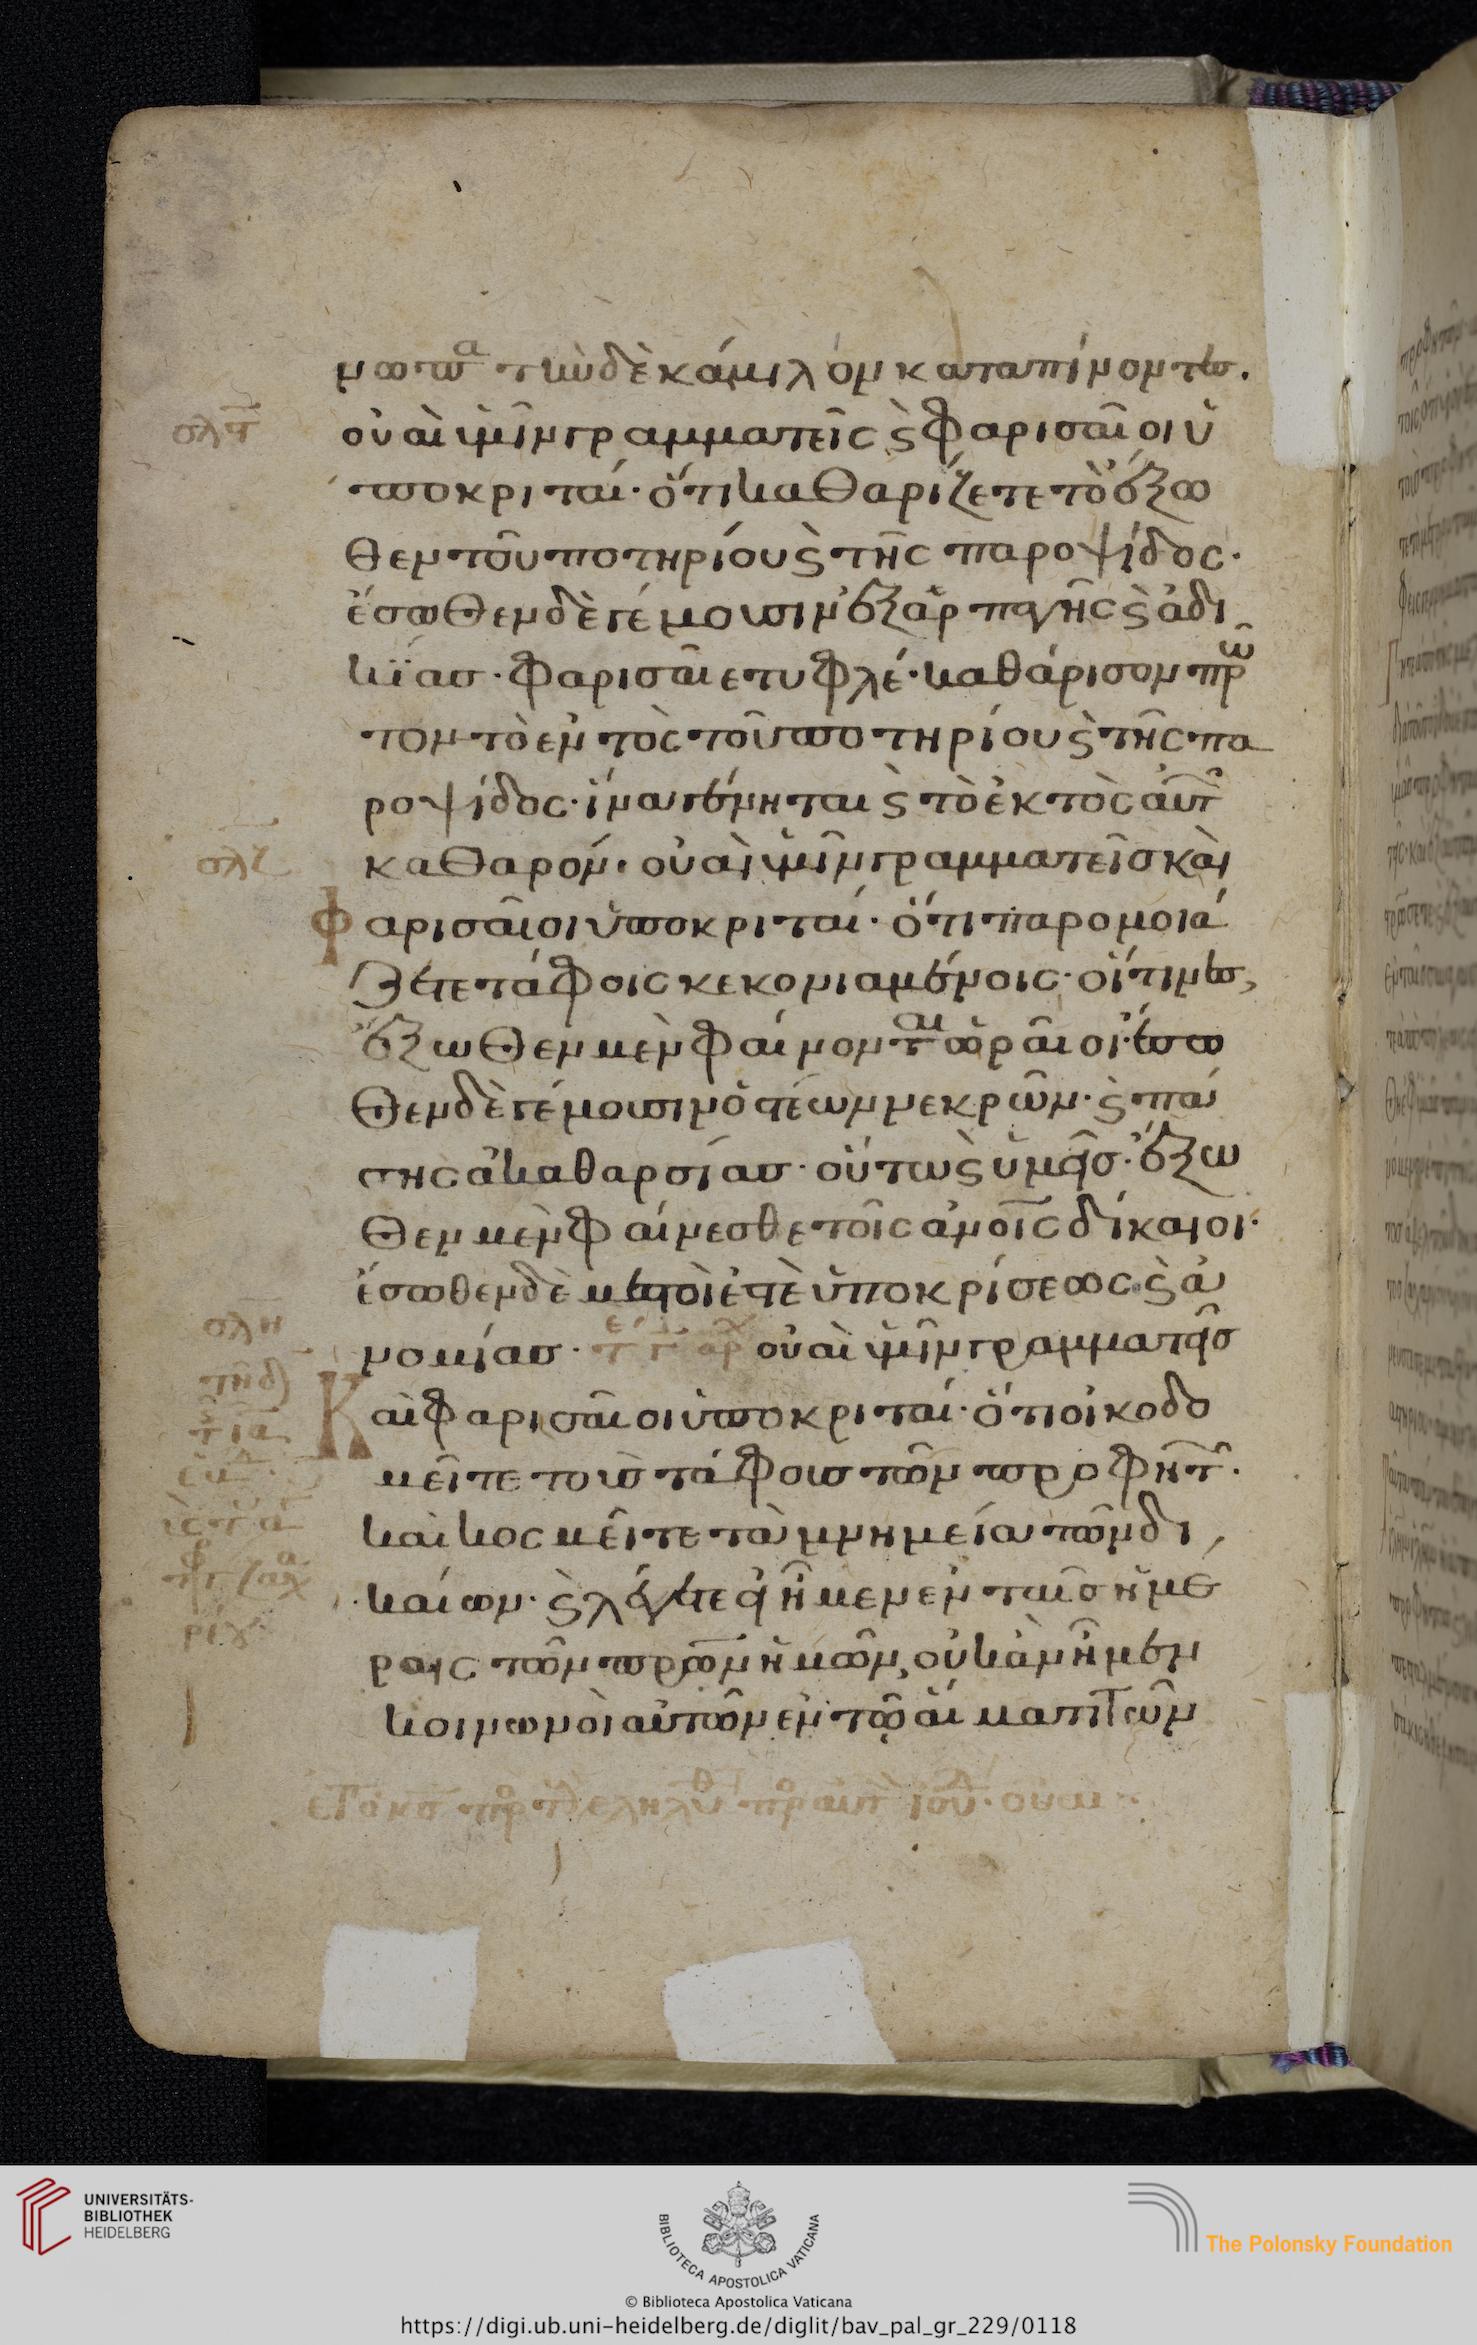 νωπα τὴν δὲ κάμιλον καταπίνοντες.
σλϛ
οὐαὶ ὑμῖν γραμματεῖς ϗ φαρισαῖοι ὑ
ποκριταί· ὅτι καθαρίζετε τὸ ἔξω
θεν τοῦ ποτηρίου ϗ τῆς παροψίδος·
ἔσωθεν δὲ γέμουσιν ἐξ ἁρπαγῆς ϗ ἀδι
κΐας· φαρισαῖε τυφλέ· καθάρισον πρῶ
τον τὸ ἐντὸς τοῦ ποτηρίου ϗ τῆς πα
ροψίδος· ἵνα γένηται ϗ τὸ ἐκτὸς αὐτ
σλζ
καθαρόν· οὐαὶ ὑμῖν γραμματεῖς καὶ
φαρισαῖοι ὑποκριταί· ὅτι παρομοιά
ζετε τάφοις κεκονιαμένοις· οἵτινες,
ἔξωθεν μὲν φαίνονται ὡραῖοι· ἔσω
θεν δὲ γέμουσιν ὀστέων νεκρῶν· ϗ πά
σης ἀκαθαρσίας· οὕτως ϗ ὑμεῖς· ἔξω
θεν μὲν φαίνεσθε τοῖς ἀνοις δίκαιοι·
ἔσωθεν δὲ μεστοὶ ἐστὲ ὑποκρίσεως ϗ ἀ
σλη
νομίας· οὐαὶ ὑμῖν γραμματεῖς
Καὶ φαρισαῖοι ὑποκριταί· ὅτι οἰκοδο
μεῖτε τοὺς τάφους τῶν προφητ·
καὶ κοσμεῖτε τὰ μνημεία τῶν δι
καίων· ϗ λέγετε εἰ ἦμεν ἐν ταῖς ἡμέ
ραις τῶν πρων ἡμῶν, οὐκ ἂν ἦμεν
κοινωνοὶ αὐτῶν ἐν τῷ αἵματι τῶν
UNIVERSITÄTS-
BIBLIOTHEK
HEIDELBERG
BIBLIOTECA APOSTOLICA VATICANA
The Polonsky Foundation
© Biblioteca Apostolica Vaticana
https://digi.ub.uni-heidelberg.de/diglit/bav_pal_gr_229/0118